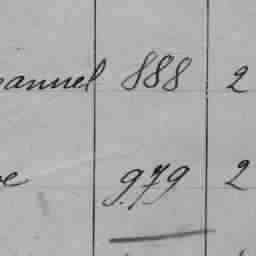 anuel 888 2
e 979 2